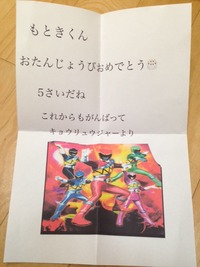 もときくん
おたんじょうびおめでとう🎂
5さいだね
これからもがんばって
キョウリュウジャーより